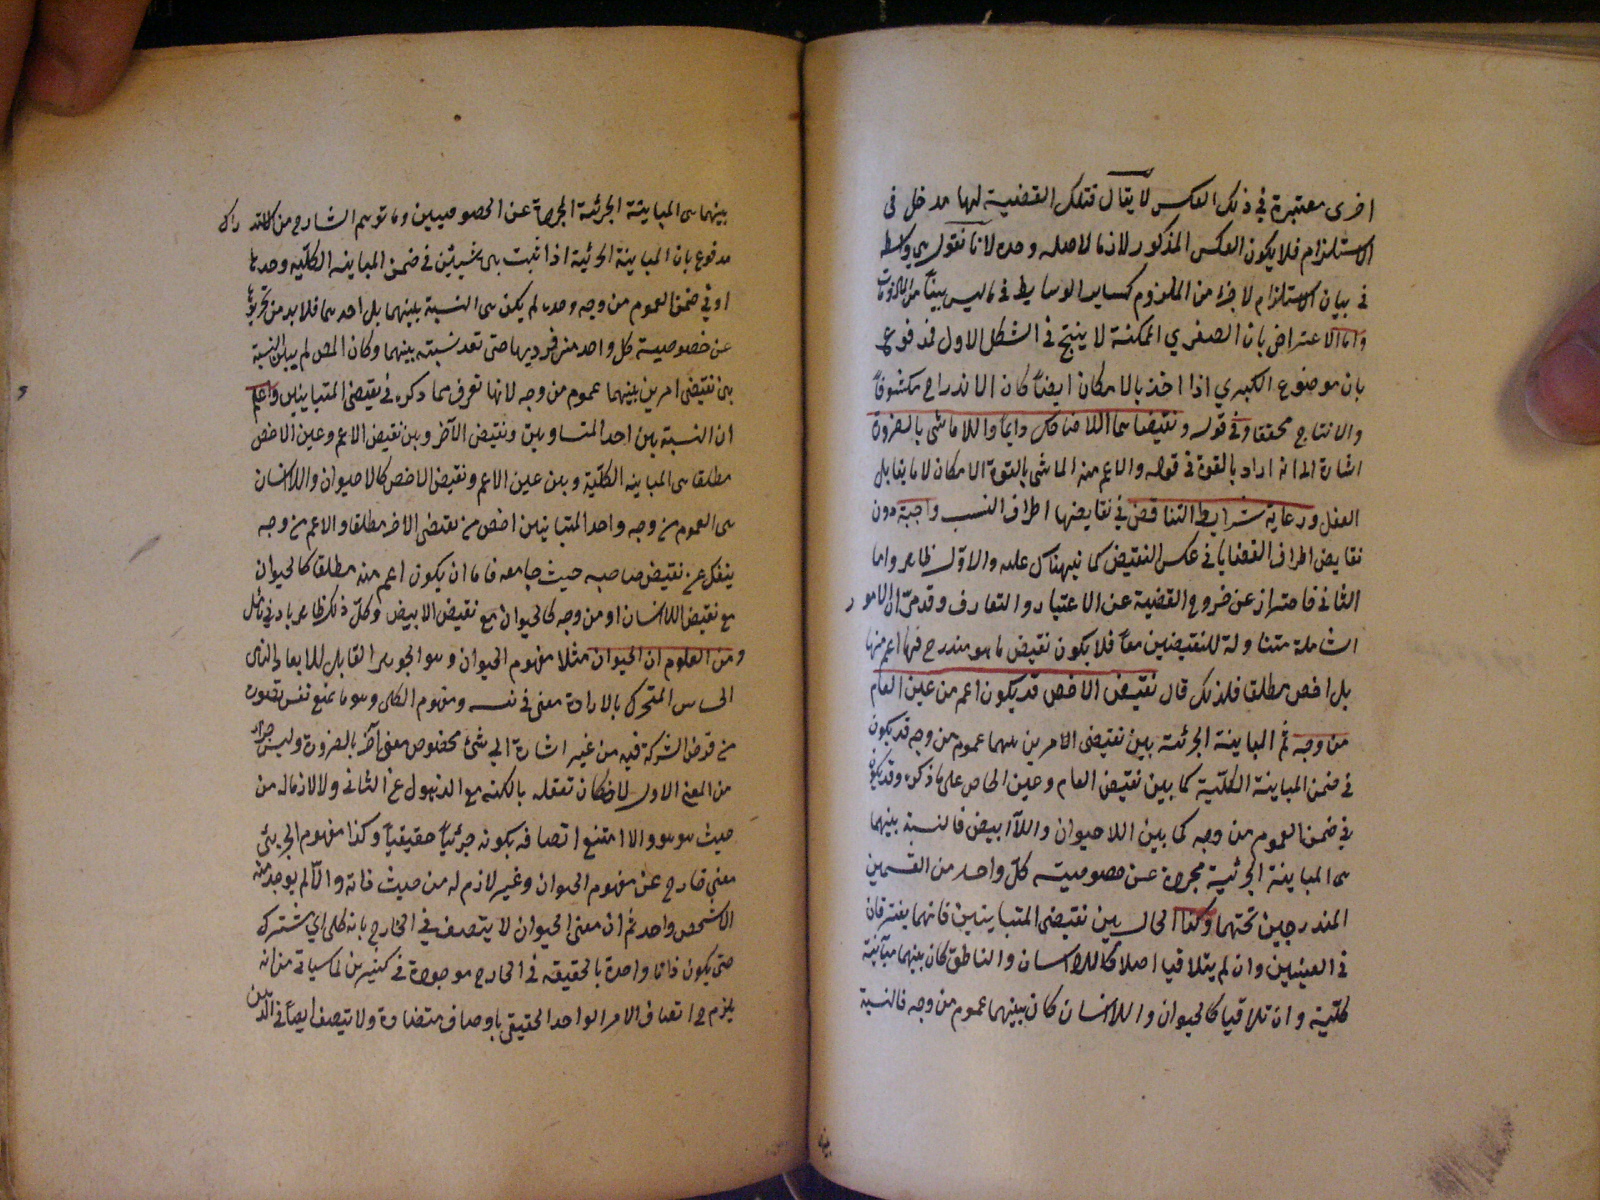 اخرى معتبرة في ذلك العكس لا يقال فتلك القضية لها مدخل في
الاستلزام فلا يكون العكس المذكور لازما لاصله وحده لانا نقول هي واسطة
في بيان الاستلزام لا جزء من الملزوم كساير الوسايط في ما ليس بينا من اللزومات
واما الاعتراض بان الصغرى الممكنة لا ينتج في الشكل الاول فمدفوع
بان موضوع الكبرى اذا اخذ بالامكان ايضا كان الاندراج مكشوفا
والانتاج محققا وفي قوله ونقيضاهما اللاضاحك دايما واللاماشي بالضرورة
اشارة الى انه اراد بالقوة في قوله والاعم منه الماشي بالقوة الامكان لا ما يقابل
الفعل ورعاية شرايط التناقض في نقايضها اطراف النسب واجبة دون
نقايض اطراف القضايا في عكس النقيض كما نبهناك عليه والاول ظاهر واما
الثاني فاحتراز عن خروج القضية عن الاعتبار والتعارف وقد مر ان الامور
الشاملة متناولة للنقيضين معا فلا يكون نقيض ما هو مندرج فيها اعم منها
بل اخص مطلقا فلذلك قال نقيض الاخص قد يكون اعم من عين العام
من وجه ثم المباينة الجزئية بين نقيضي الامرين بينهما عموم من وجه قد يكون
في ضمن المباينة الكلية كما بين نقيض العام وعين الخاص على ما ذكره وقد يكون
في ضمن العموم من وجه كما بين اللاحيوان واللاابيض فالنسبة بينهما
هي المباينة الجزئية مجردة عن خصوصيته كل واحد من القسمين
المندرجين تحتها وكذا الحال بين نقيضي المتباينين فانهما يفترقان
في العينين وان لم يتلاقيا اصلا كاللاانسان والناطق كان بينهما مباينة
كلية وان تلاقيا كالحيوان واللاانسان كان بينهما عموم من وجه فالنسبة
بينهما هي المباينة الجزئية المجردة عن الخصوصيتين وما توهم الشارح من
مدفوع بان المباينة الجزئية اذا ثبت بين شيئين في ضمن المباينة الكلية وحدها
او في ضمن العموم من وجه وحده لم يكن هي النسبة بينهما بل احدهما فلا بد من تجريدها
عن خصوصية كل واحد من فرديها حتى تعد نسبته بينهما وكان المص لم يبين النسبة
بين نقيضي امرين بينهما عموم من وجه لانها تعرف مما ذكره في نقيضي المتباينين واعلم
ان النسبة بين احد المتساويين ونقيض الآخر وبين نقيض الاعم وعين الاخص
مطلقا هي المباينة الكلية وبين عين الاعم ونقيض الاخص كالحيوان واللاانسان
هي العموم من وجه واحد المتباينين اخص من نقيض الآخر مطلقا والاعم من وجه
ينفك عن نقيض صاحبه حيث جامعه فاما ان يكون اعم منه مطلقا كالحيوان
مع نقيض اللاانسان او من وجه كالحيوان مع نقيض الابيض وكل ذلك ظاهر بادنى تامل
ومن المعلوم ان الحيوان مثلا مفهوم الحيوان وهو الجوهر القابل للابعاد النامي
الحساس المتحرك بالارادة معنى في نفسه ومفهوم الكلي وهو ما لا يمنع نفس تصوره
من فرض الشركة فيه من غير اشارة الى شيء مخصوص معنى آخر بالضرورة وليس جزءا
من المعنى الاول لامكان تعقله بالكنه مع الذهول عن الثاني ولا لازما له من
حيث هو هو والا امتنع اتصافه بكونه جزئيا حقيقيا وكذا مفهوم الجزئي
معنى خارج عن مفهوم الحيوان وغير لازم له من حيث ذاته والا لم يوجد منه
الا شخص واحد ثم ان معنى الحيوان لا يتصف في الخارج بانه كلي اي مشترك
حتى يكون ذاتا واحدة بالحقيقة في الخارج موجودة في كثيرين لما سياتي من انه
يلزم ح اتصاف الامر الواحد الحقيقي باوصاف متضادة ولا يتصف ايضا في الذهن